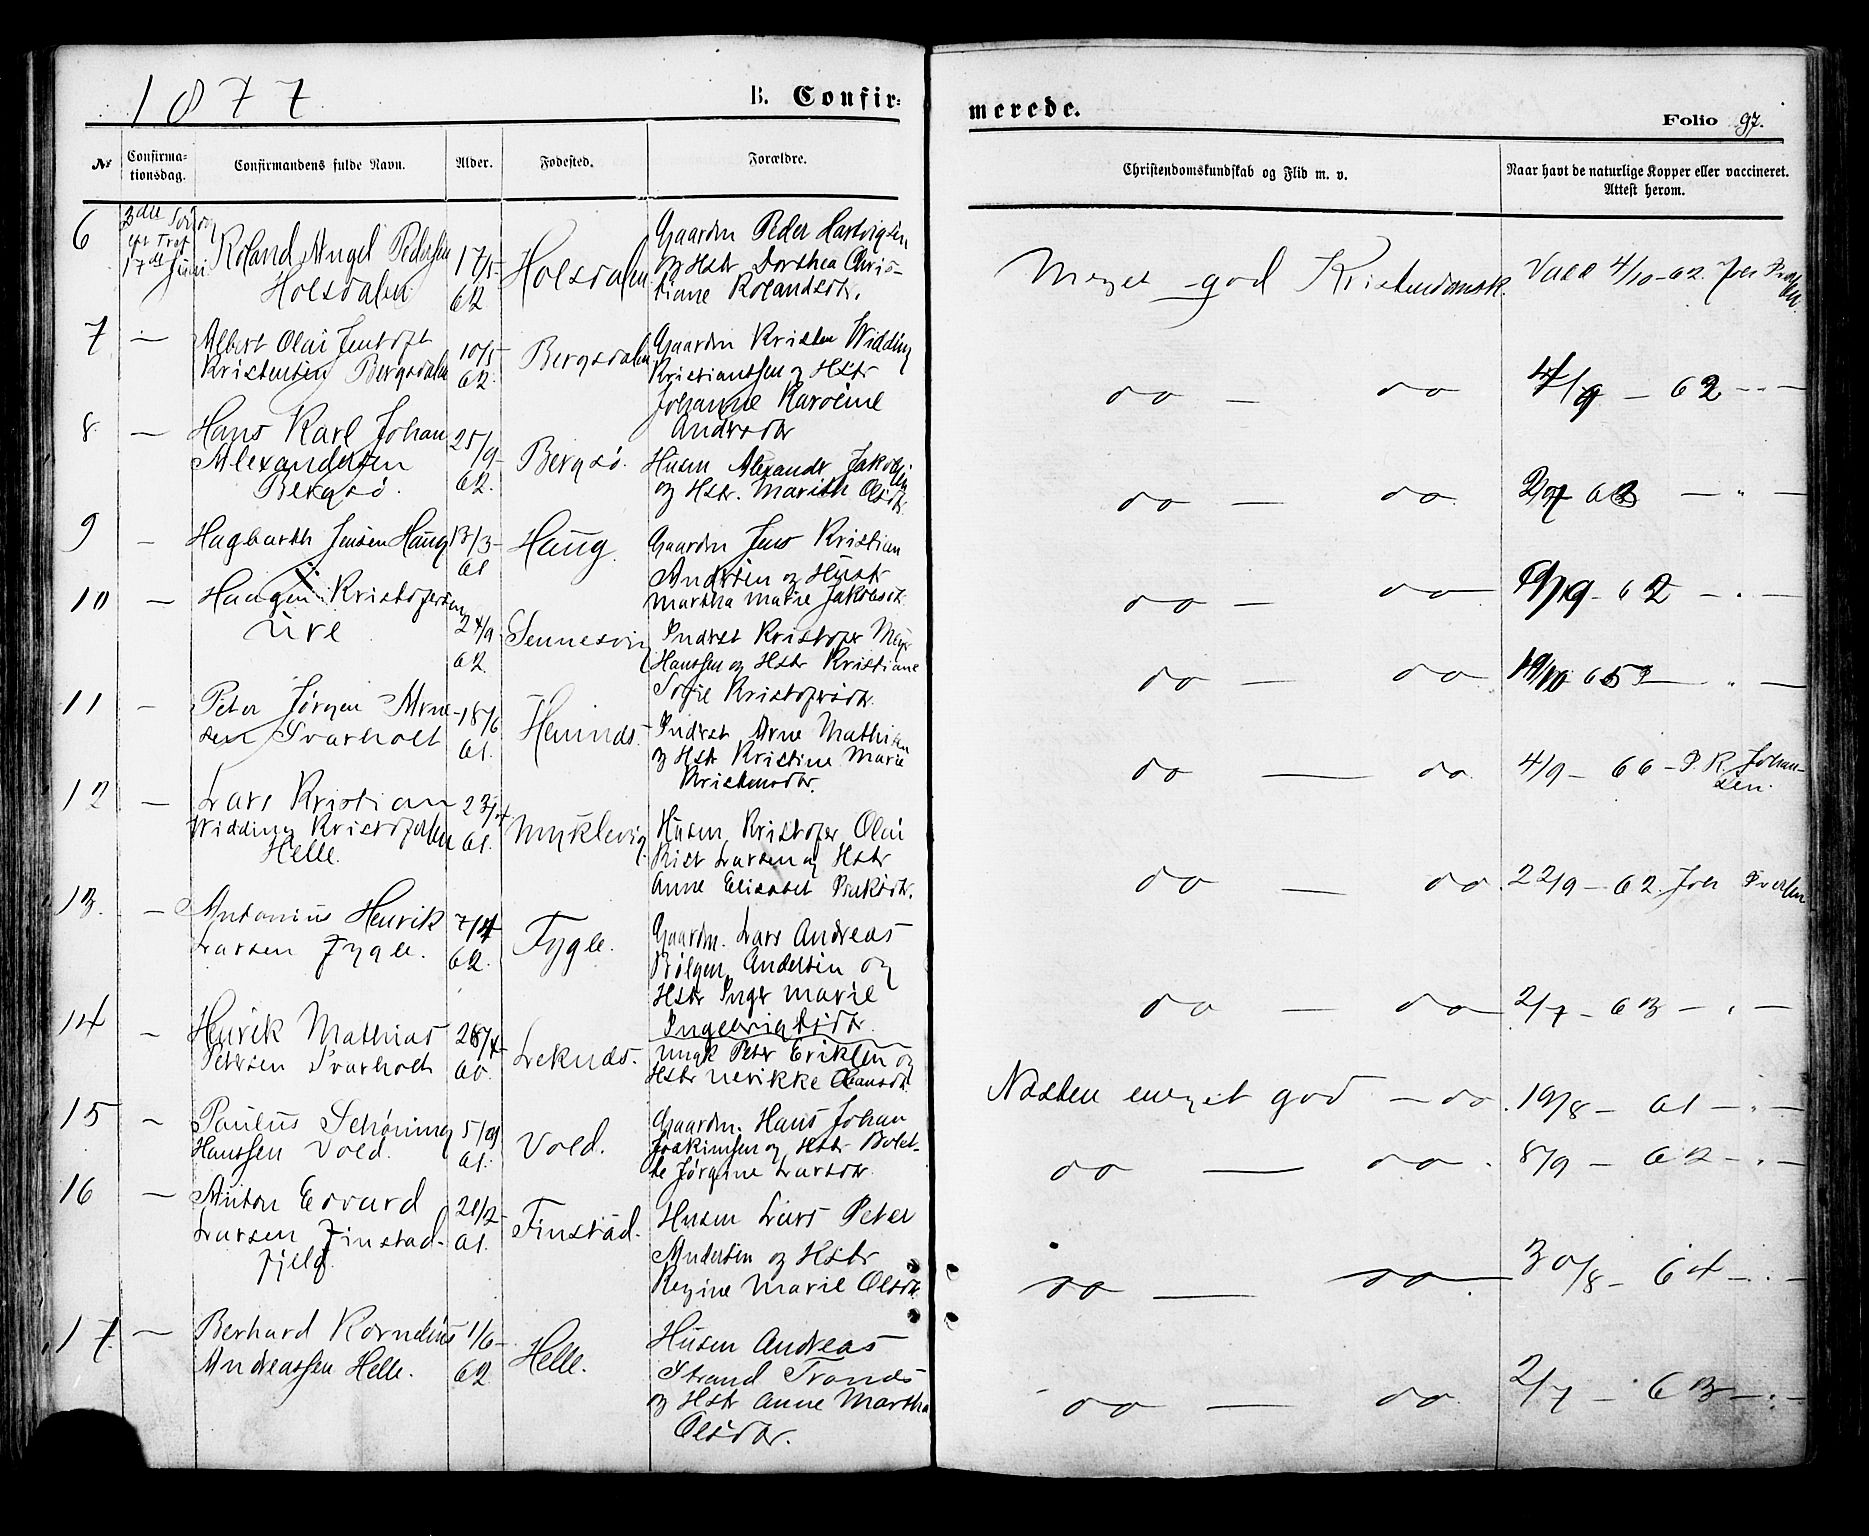 1877
B. Confir-
merede.
Folio 97.
№
Confirma-
tionsdag.
Confirmandens fulde Navn.
Alder.
Fødested.
Forældre.
Christendomskundskab og Flid m. v.
Naar havt de naturlige Kopper eller vaccineret.
Attest herom.
6
3die
17de Juni
Roland Angel Pedersen
Holsdalen
17/5
62
Holsdalen
Gaardm Peder Hartvigsen
og Hstr Dorthea Chris-
tiane Rolandsdtr.
Meget god Kristendomsk.
Vacc 4/10-62. Joh
7 —
Albert Olai Jentoft
Kristensen Bergsdalen
10/5
62.
Bergsdalen
Gaardm Kristen Widding
Kristianssen og Hstr
Johanne Karoline
Andrsdtr
do — do
/9 — 62 - " —
8. —
Hans Karl Johan
Alexandersen
Bergsø.
25/9-
62.
Bergsø.
Husm Alexandr Jakobsen
og Hstr. Marith Olsdtr.
do — do
— " —
9 —
Hagbarth Jensen Haug
13/3-
61
Haug.
Gaardm Jens Kristian
Andersen og Hustr
Martha Marie Jakobsdt.
do — do —
62 — " —
10 —
Haagen Kristofersen
Ure
24/9
62.
Sennesvig
Indrst Kristofer Meyer
Hanssen og Hstr Kristiane
Sofie Kristofrsdtr.
do — do —
— " —
11 —
Peter Jørgen Arne-
sen Svarholt
18/6
61.
Hemnds.
Indrst Arne Mathisen
og Hstr Kristine Marie
Kristensdtr.
do — do
4/9 — 66 — P. R. Johan-
sen.
12 —
Lars Kristian
Widding Kristofersen
Helle.
61.
Myklevig.
Husm Kristofer Olai
Kist Larsen og Hstr
Anne Elisabet
do — do.
22/9 — 62. Joh Iversen
13. —
Antonius Henrik
Larsen Fygle.
7/4
62.
Fygle.
Gaardm. Lars Andreas
Bølgen Andersen og
Hstr Inger Marie
Ingebrigtsdtr.
do — do —
2/7 — 63 — " —
14 —
Henrik Mathias
Petersen Svarholt
28/4
60.
Leknds.
Ungk Peter Eriksen og
Hstr Nerikke Oleansdt.
Næsten meget god — do.
19/8 — 61 — " —
15 —
Paulus Schøning
Hanssen Vold.
5/
61.
Vold.
Gaardm. Hans Johan
Joakimsen og Hstr Bolet-
te Jørgine Larsdtr.
do — do.
8/9 — 62 — " —
16 —
Anton Edvard
Larsen Finstad-
fjeld.
61.
Finstad.
Husm Lars Peter
Andersen og Hstr
Regine Marie Olsdtr.
do — do —
30/8 — 64 — " —
17. —
Berhard Kornelius
Andreassen Helle.
1/6-
62
Helle.
Husm Andreas
Strand Tronds
og Hstr Anne Martha
Olsdtr.
do — do.
2/7 — 63 — " —